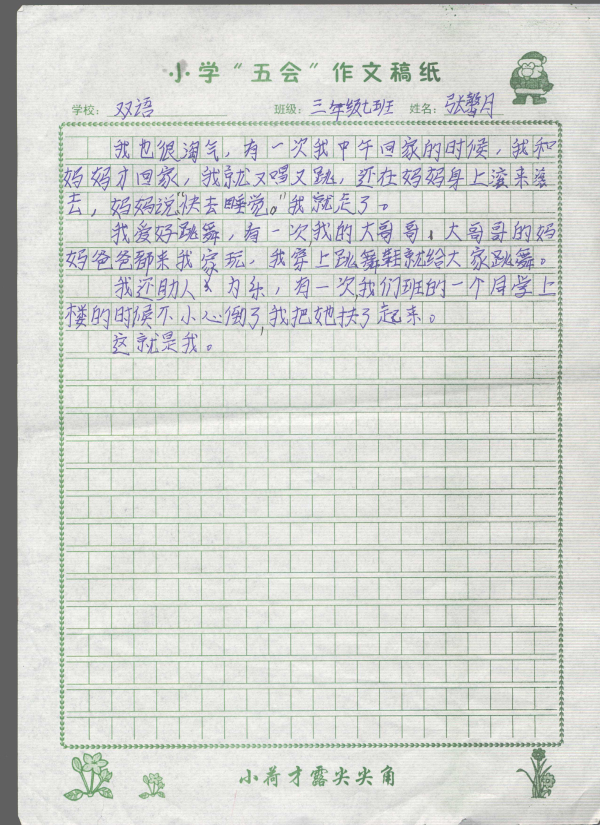 小学“五会”作文稿纸
学校：双语 班级：三年级七班 姓名：张蟹月
我也很淘气，有一次我中午回家的时候，我和
妈妈才回家，我就又唱又跳，还在妈妈身上滚来滚
去，妈妈说“快去睡觉。”我就走了。
我爱好跳舞，有一次，我的大哥哥、大哥哥的妈
妈爸爸都来我家玩，我穿上跳舞鞋就给大家跳舞。
我还助人为乐，有一次，我们班的一个同学上
楼的时候不小心倒了，我把她扶了起来。
这就是我。
小荷才露尖尖角